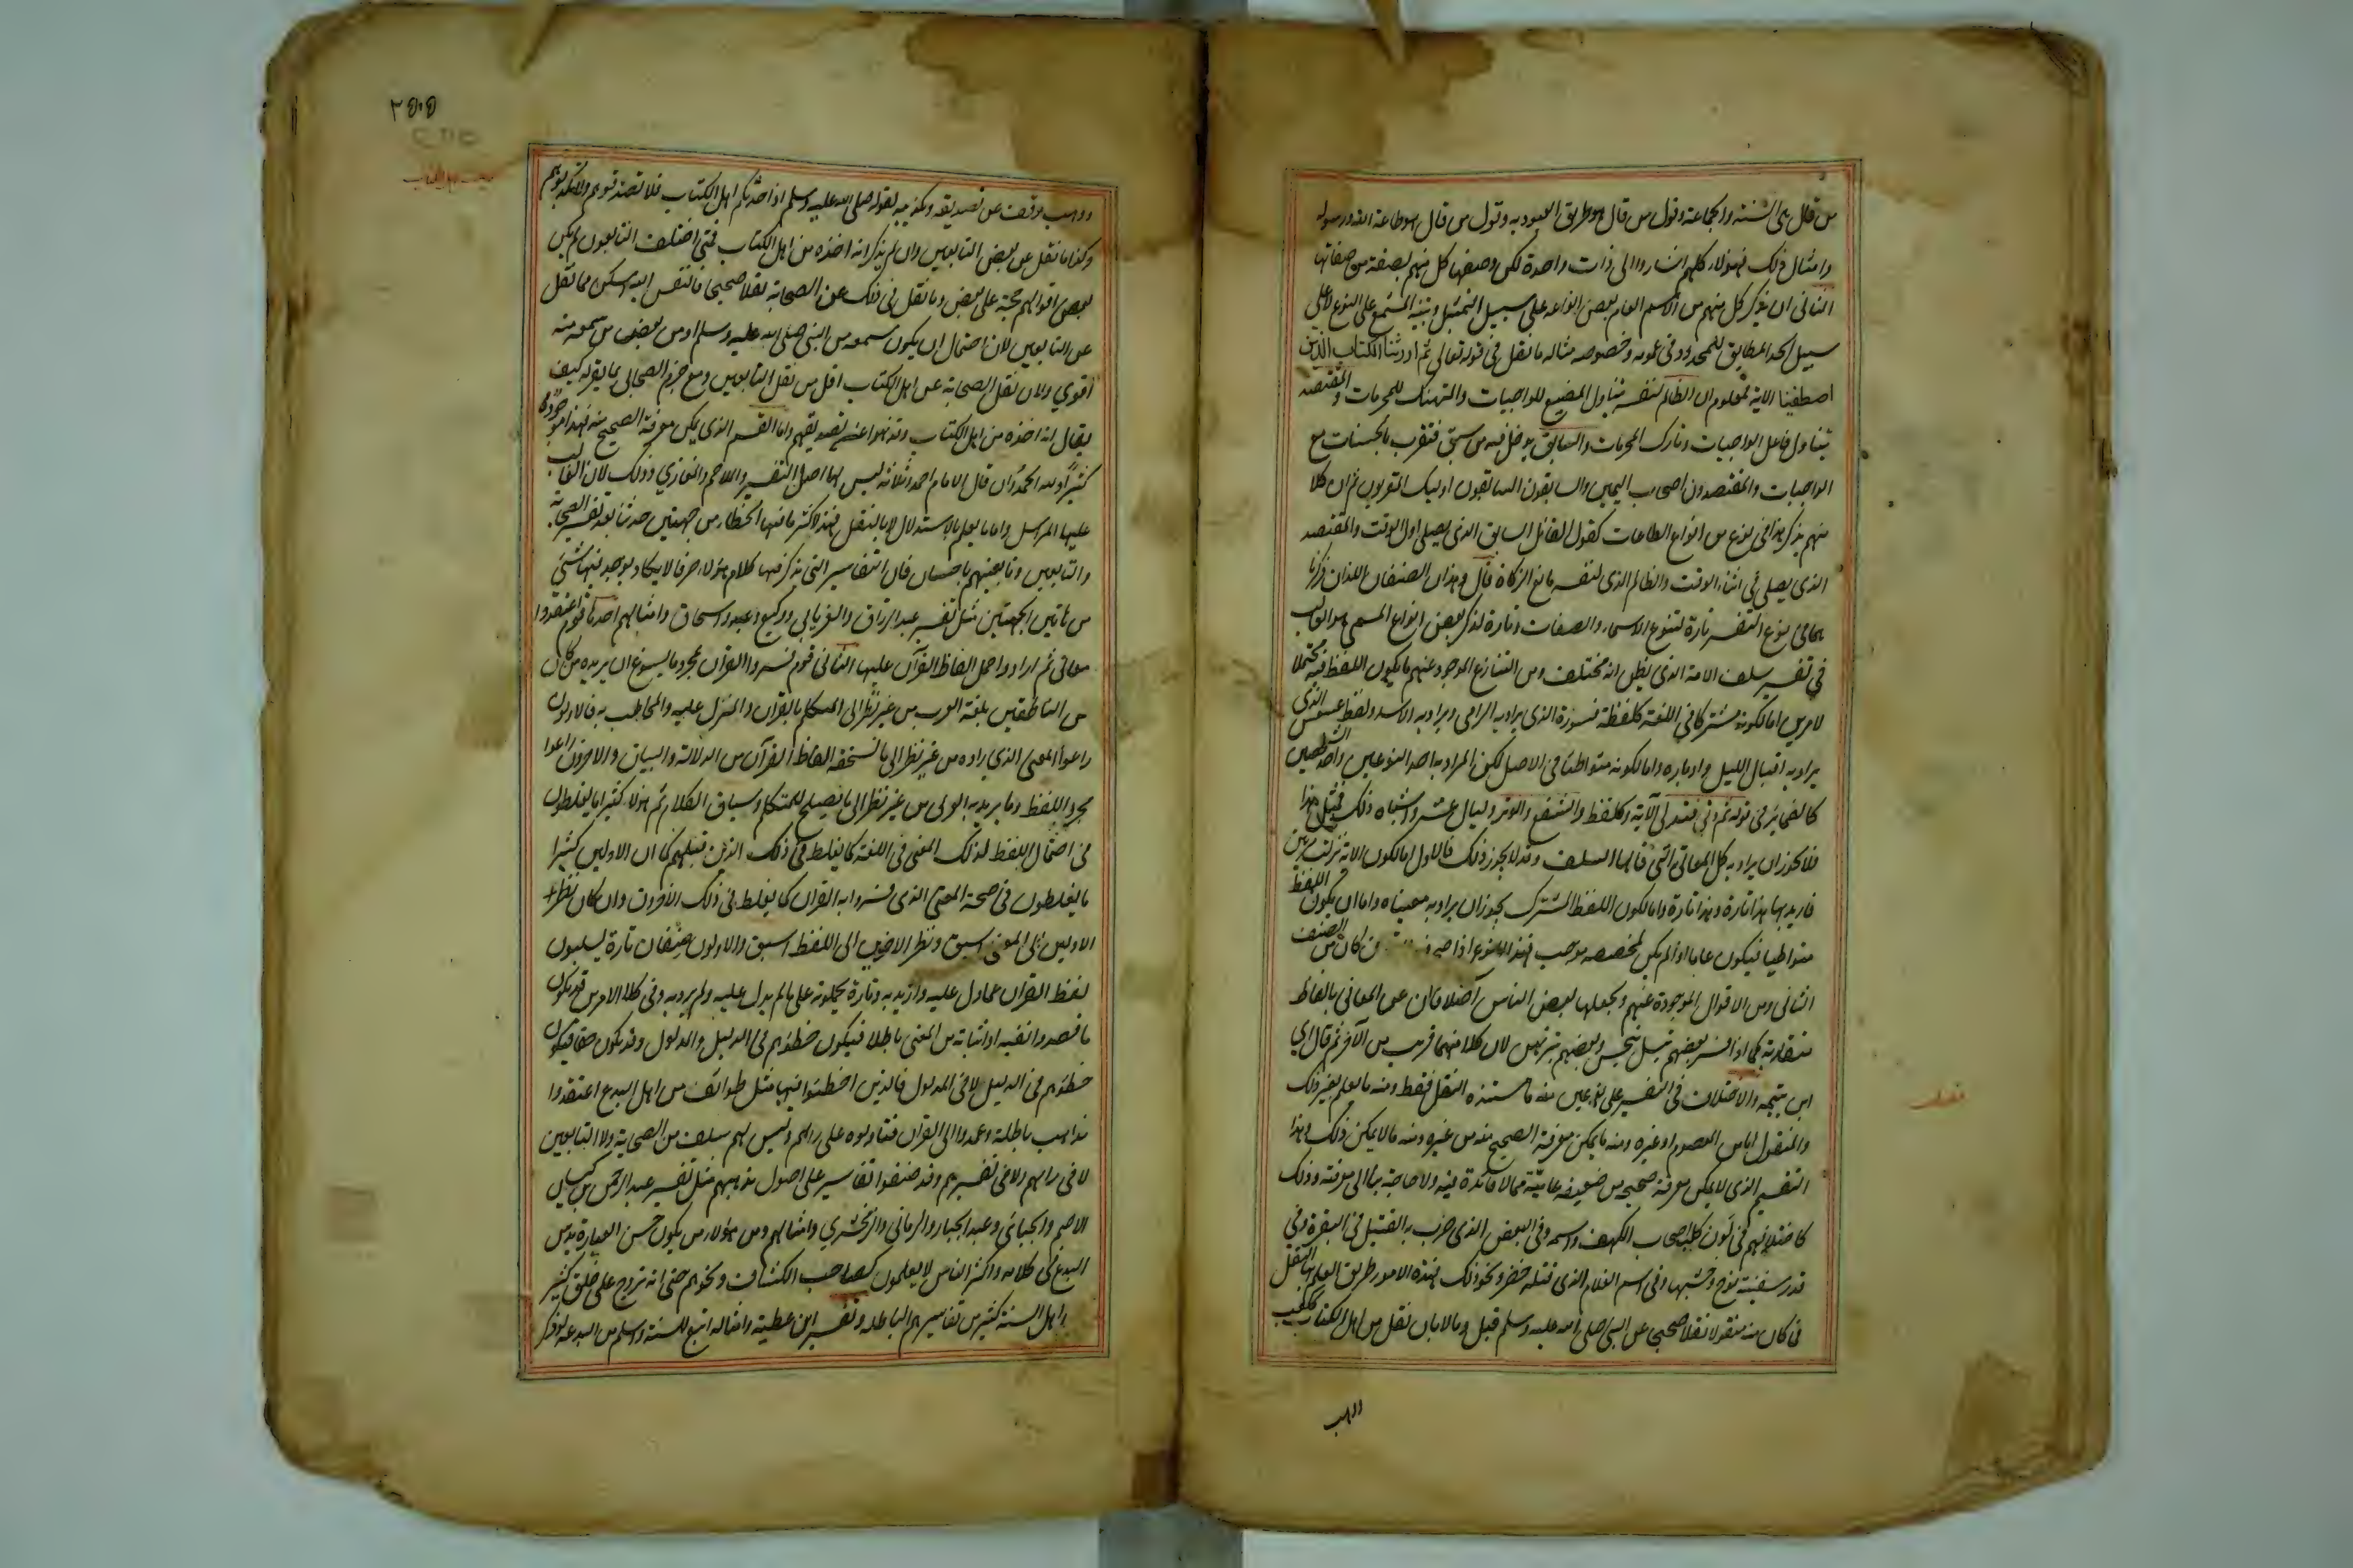 من قال هي السنة والجماعة وقول من قال هو طريق العبودية وقول من قال هو طاعة الله ورسوله
وامثال ذلك فهؤلاء كلهم اشاروا الى ذات واحدة لكن وصفها كل منهم بصفة من صفاتها
الثاني ان يذكر كل منهم من الاسم العام بعض انواعه على سبيل التمثيل وتنبيه المستمع على النوع لا على
سبيل الحد المطابق للمحدود في عمومه وخصوصه مثاله ما نقل في قوله تعالى ثم اورثنا الكتاب الذين
اصطفينا الاية فمعلوم ان الظالم لنفسه يتناول المضيع للواجبات والمنتهك للحرمات والمقتصد
يتناول فاعل الواجبات وتارك المحرمات والسابق يدخل فيه من سبق فتقرب بالحسنات مع
الواجبات والمقتصدون اصحاب اليمين والسابقون السابقون اوليك المقربون ثم ان كلا
منهم يذكر هذا في نوع من انواع الطاعات كقول القائل السابق الذي يصلي اول الوقت والمقتصد
الذي يصلي في اثناء الوقت والظالم الذي لنفسه مانع الزكاة قال وهذان الصنفان اللذان ذكرنا
هما في تنوع التفسير تارة لتنوع الاسماء والصفات وتارة لذكر بعض انواع المسمى هو الغالب
في تفسير سلف الامة الذي يظن انه مختلف ومن التنازع الموجود عنهم ما يكون اللفظ فيه محتملا
لامرين اما لكونه مشتركا في اللغة كلفظة قسورة الذي يراد به الرامي ويراد به الاسد ولفظ عسعس الذي
يراد به اقبال الليل وادباره واما لكونه متواطئا في الاصل لكن المراد به احد النوعين واحد الشخصين
كالضمائر في قوله ثم دنى فتدلى الآية وكلفظ والشفع والوتر وليال عشر واشباه ذلك فمثل هذا
قد يجوز ان يراد به كل المعاني التي قالها السلف وقد لا يجوز ذلك فالاول اما لكون الاية نزلت مرتين
فاريد بها هذا تارة وهذا تارة واما لكون اللفظ المشترك يجوز ان يراد به معنياه واما ان يكون اللفظ
متواطيا فيكون عاما اذا لم يكن لمخصصه موجب فهذا النوع اذا صح كان من الصنف
الثاني ومن الاقوال الموجودة عنهم ويجعلها بعض الناس اختلافا ان عبروا عن المعاني بالفاظ
متقاربة كما اذا فسر بعضهم تبسل بتحبس وبعضهم بترتهن لان كلا منهما قريب من الآخر ثم قال اي
ابن تيمية والاختلاف في التفسير على نوعين منه ما مستنده النقل فقط ومنه ما يعلم بغير ذلك
والمنقول اما من المعصوم او غيره ومنه ما يمكن معرفة الصحيح منه من غيره ومنه ما لا يمكن ذلك وهذا
القسم الذي لا يمكن معرفة صحيحه من ضعيفه عامته مما لا فائدة فيه ولا حاجة بنا الى معرفته وذلك
كاختلافهم في لون كلب اصحاب الكهف واسمه وفي البعض الذي ضرب به القتيل في البقرة وفي
قدر سفينة نوح وخشبها وفي اسم الغلام الذي قتله خضر ونحو ذلك فهذه الامور طريق العلم بها النقل
فما كان منه منقولا نقلا صحيحا عن النبي صلى الله عليه وسلم قبل وما لا بان نقل من اهل الكتاب ككعب
ووهب وقف عن تصديقه وتكذيبه لقوله صلى الله عليه وسلم اذا حدثكم اهل الكتاب فلا تصدقوهم ولا تكذبوهم
وكذا ما نقل عن بعض التابعين وان لم يذكر انه اخذه من اهل الكتاب فمتى اختلف التابعون لم يكن
بعض اقوالهم حجة على بعض وما نقل في ذلك عن الصحابة نقلا صحيحا فالنفس اليه اسكن مما نقل
عن التابعين لان احتمال ان يكون سمعه من النبي صلى الله عليه وسلم او من بعض من سمعه منه
اقوي ولان نقل الصحابة عن اهل الكتاب اقل من نقل التابعين ومع جزم الصحابي بما يقوله كيف
يقال انه اخذه من اهل الكتاب وقد نهوا عن تصديقهم واما القسم الذي يمكن معرفة الصحيح منه فهذا موجود
كثيرا ولله الحمد وان قال الامام احمد ثلاثة ليس لها اصل التفسير والملاحم والمغازي وذلك لان الغالب
عليها المراسل واما ما يعلم بالاستدلال لا بالنقل فهذا اكثر ما فيها الخطاء من جهتين حدثتا بعد تفسير الصحابة
والتابعين وتابعيهم باحسان فان التفاسير التي يذكر فيها كلام هؤلاء صرفا لا يكاد يوجد فيها شيئ
من هاتين الجهتين مثل تفسير عبد الرزاق والفريابي ووكيع وعبد واسحاق وامثالهم احدهما قوم اعتقدوا
معاني ثم ارادوا حمل الفاظ القرآن عليها الثاني قوم فسروا القرآن بمجرد ما يسوغ ان يريده من كان
من الناطقين بلغة العرب من غير نظر الى المتكلم بالقرآن والمنزل عليه والمخاطب به فالاولون
راعوا المعنى الذي رأوه من غير نظر الى ما تستحقه الفاظ القرآن من الدلالة والبيان والاخرون راعوا
مجرد اللفظ وما يريد به العربي من غير نظر الى ما يصلح للمتكلم وسياق الكلام ثم هؤلاء كثيرا ما يغلطون
في احتمال اللفظ لذلك المعنى في اللغة كما يغلط في ذلك الذين قبلهم كما ان الاولين كثيرا
ما يغلطون في صحة المعنى الذي فسروا به القرآن كما يغلط في ذلك الآخرون وان كان نظر
الاولين الى المعنى اسبق ونظر الاخرين الى اللفظ اسبق والاولون صنفان تارة يسلبون
لفظ القرآن عما دل عليه واريد به وتارة يحملونه على ما لم يدل عليه ولم يرد به وفي كلا الامرين قد يكون
ما قصدوا نفيه او اثباته من المعنى باطلا فيكون خطؤهم في الدليل والمدلول وقد يكون حقا فيكون
خطؤهم في الدليل لا في المدلول فالذين اخطئوا فيها مثل طوائف من اهل البدع اعتقدوا
مذاهب باطلة وعمدوا الى القرآن فتاولوه على رايهم وليس لهم سلف من الصحابة ولا التابعين
لا في رايهم ولا في تفسيرهم وقد صنفوا تفاسير على اصول مذهبهم مثل تفسير عبد الرحمن بن كيسان
الاصم والجبائي وعبد الجبار والرماني والزمخشري وامثالهم ومن هؤلاء من يكون حسن العبارة يدس
البدع في كلامه واكثر الناس لا يعلمون كصاحب الكشاف ونحوهم حتى انه تروج على خلق كثير
من اهل السنة كثير من تفاسيرهم الباطلة وتفسير ابن عطية وامثاله اتبع للسنة واسلم من البدعة ولو ذكر